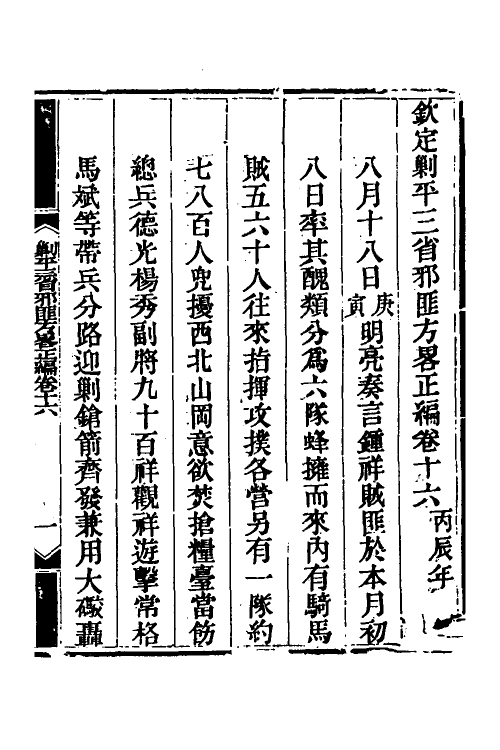 欽定剿平三省邪匪方畧正編卷十六 丙辰年
八月十八日庚寅明亮奏言鍾祥賊匪於本月初
八日率其醜類分爲六隊蜂擁而來內有騎馬
賊五六十人往來指揮攻撲各營另有一隊約
七八百人兜擾西北山岡意欲焚搶糧臺當飭
總兵德光楊秀副將九十百祥觀祥遊擊常格
馬斌等帶兵分路迎剿鎗箭齊發兼用大礮轟
剿平三省邪匪方畧正編卷十六
一